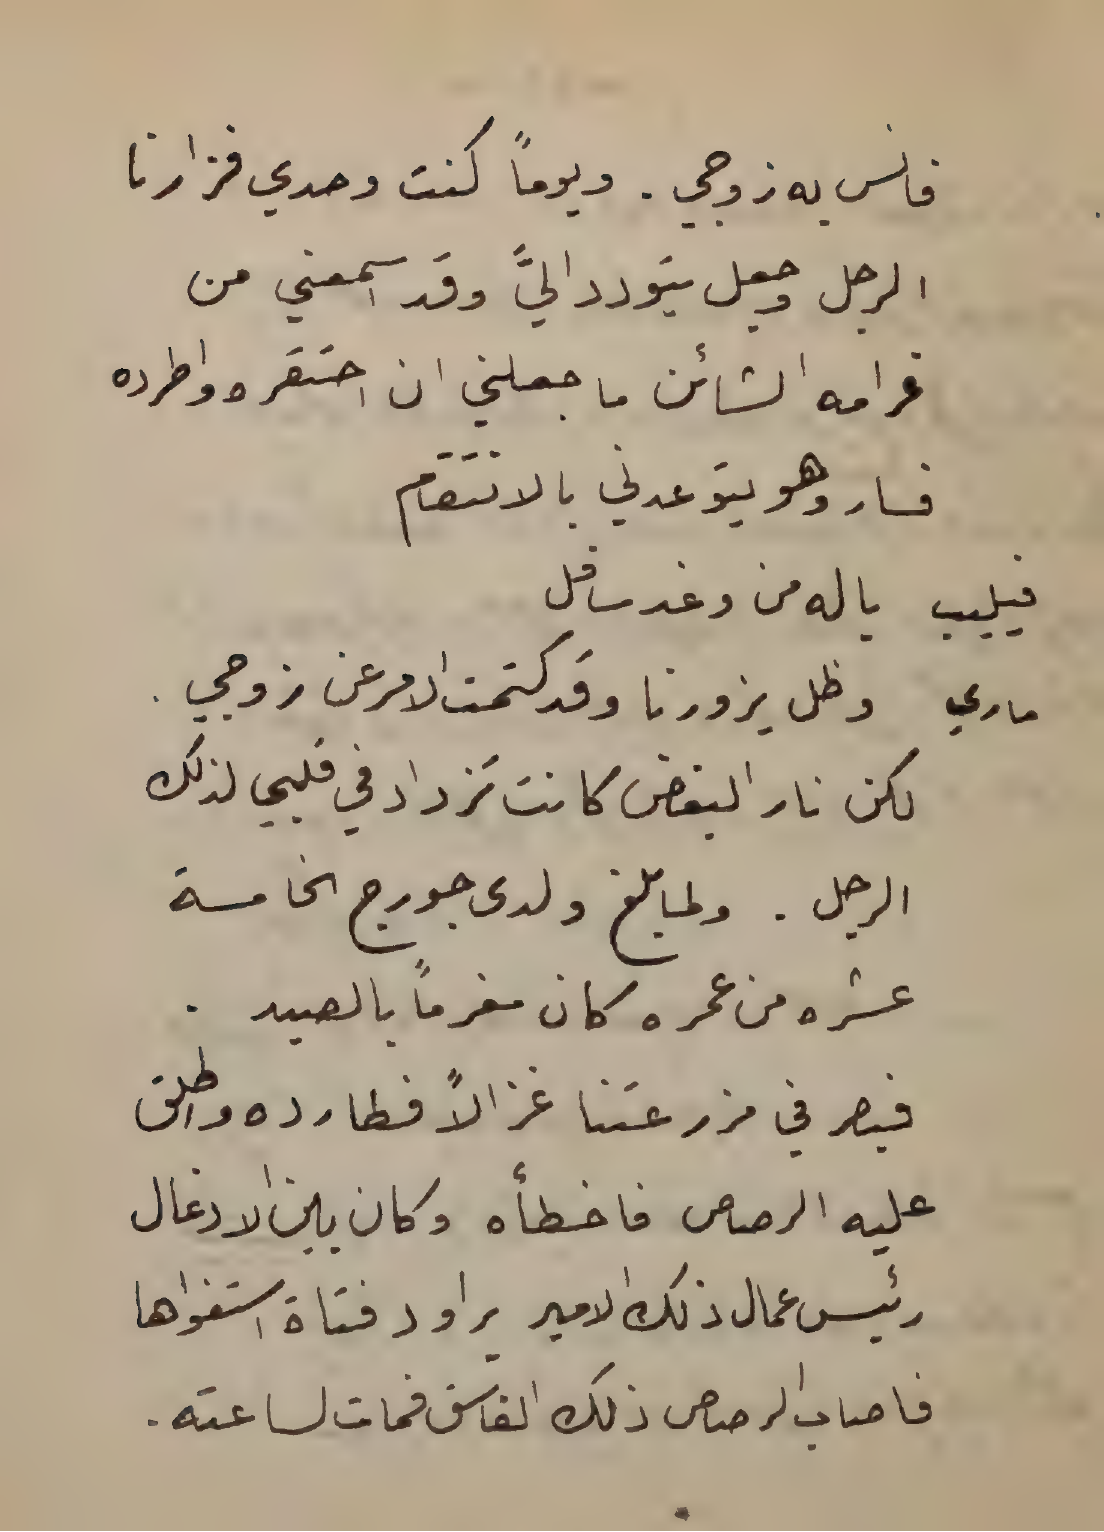 فانس به زوجي . ويوماً كنت وحدي فزارنا
الرجل وجعل يتودد اليَّ وقد اسمعني من
غرامه الشائن ما جعلني ان احتقره واطرده
فسار وهو يتوعدني بالانتقام
فيليب يا له من وغد سافل
ماري وظل يزورنا وقد كتمت الامر عن زوجي .
لكن نار البغض كانت تزداد في قلبي لذلك
الرجل . ولما بلغ ولدي جورج الخامسة
عشره من عمره كان مغرماً بالصيد .
فبصر في مزرعتنا غزالاً فطارده واطلق
عليه الرصاص فاخطأه وكان بين الادغال
رئيس عمال ذلك الامير يراود فتاة استغواها
فاصاب الرصاص ذلك الفاسق فمات لساعته .